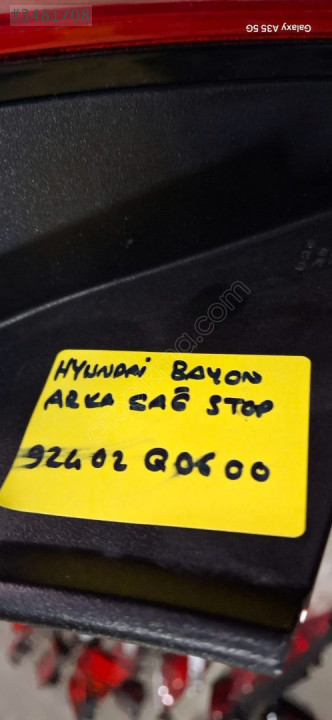 #3481708
Galaxy A35 5G
HYUNDAİ BAYON
ARKA SAĞ STOP
92402 Q0600